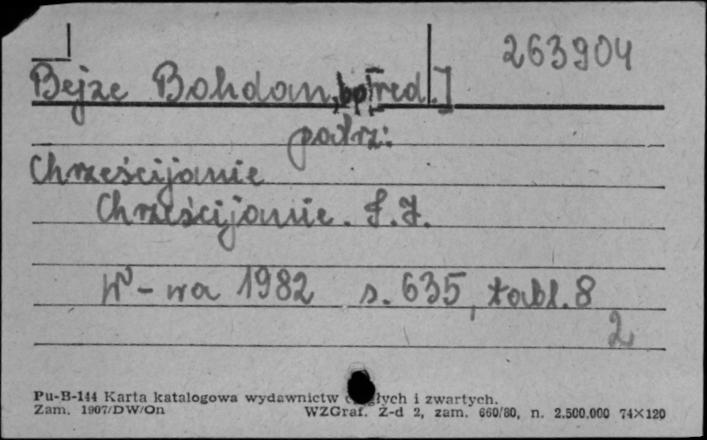 263904
Bejze Bohdan, bp [red.]
patrz:
Chrześcijanie
Chrześcijanie. T.7.
W-wa 1982 s. 635, tabl. 8
2
Pu-B-144 Karta katalogowa wydawnictw ciągłych i zwartych.
Zam. 1907/DW/On WZGraf. Z-d 2, zam. 660/80, n. 2.500.000 74×120